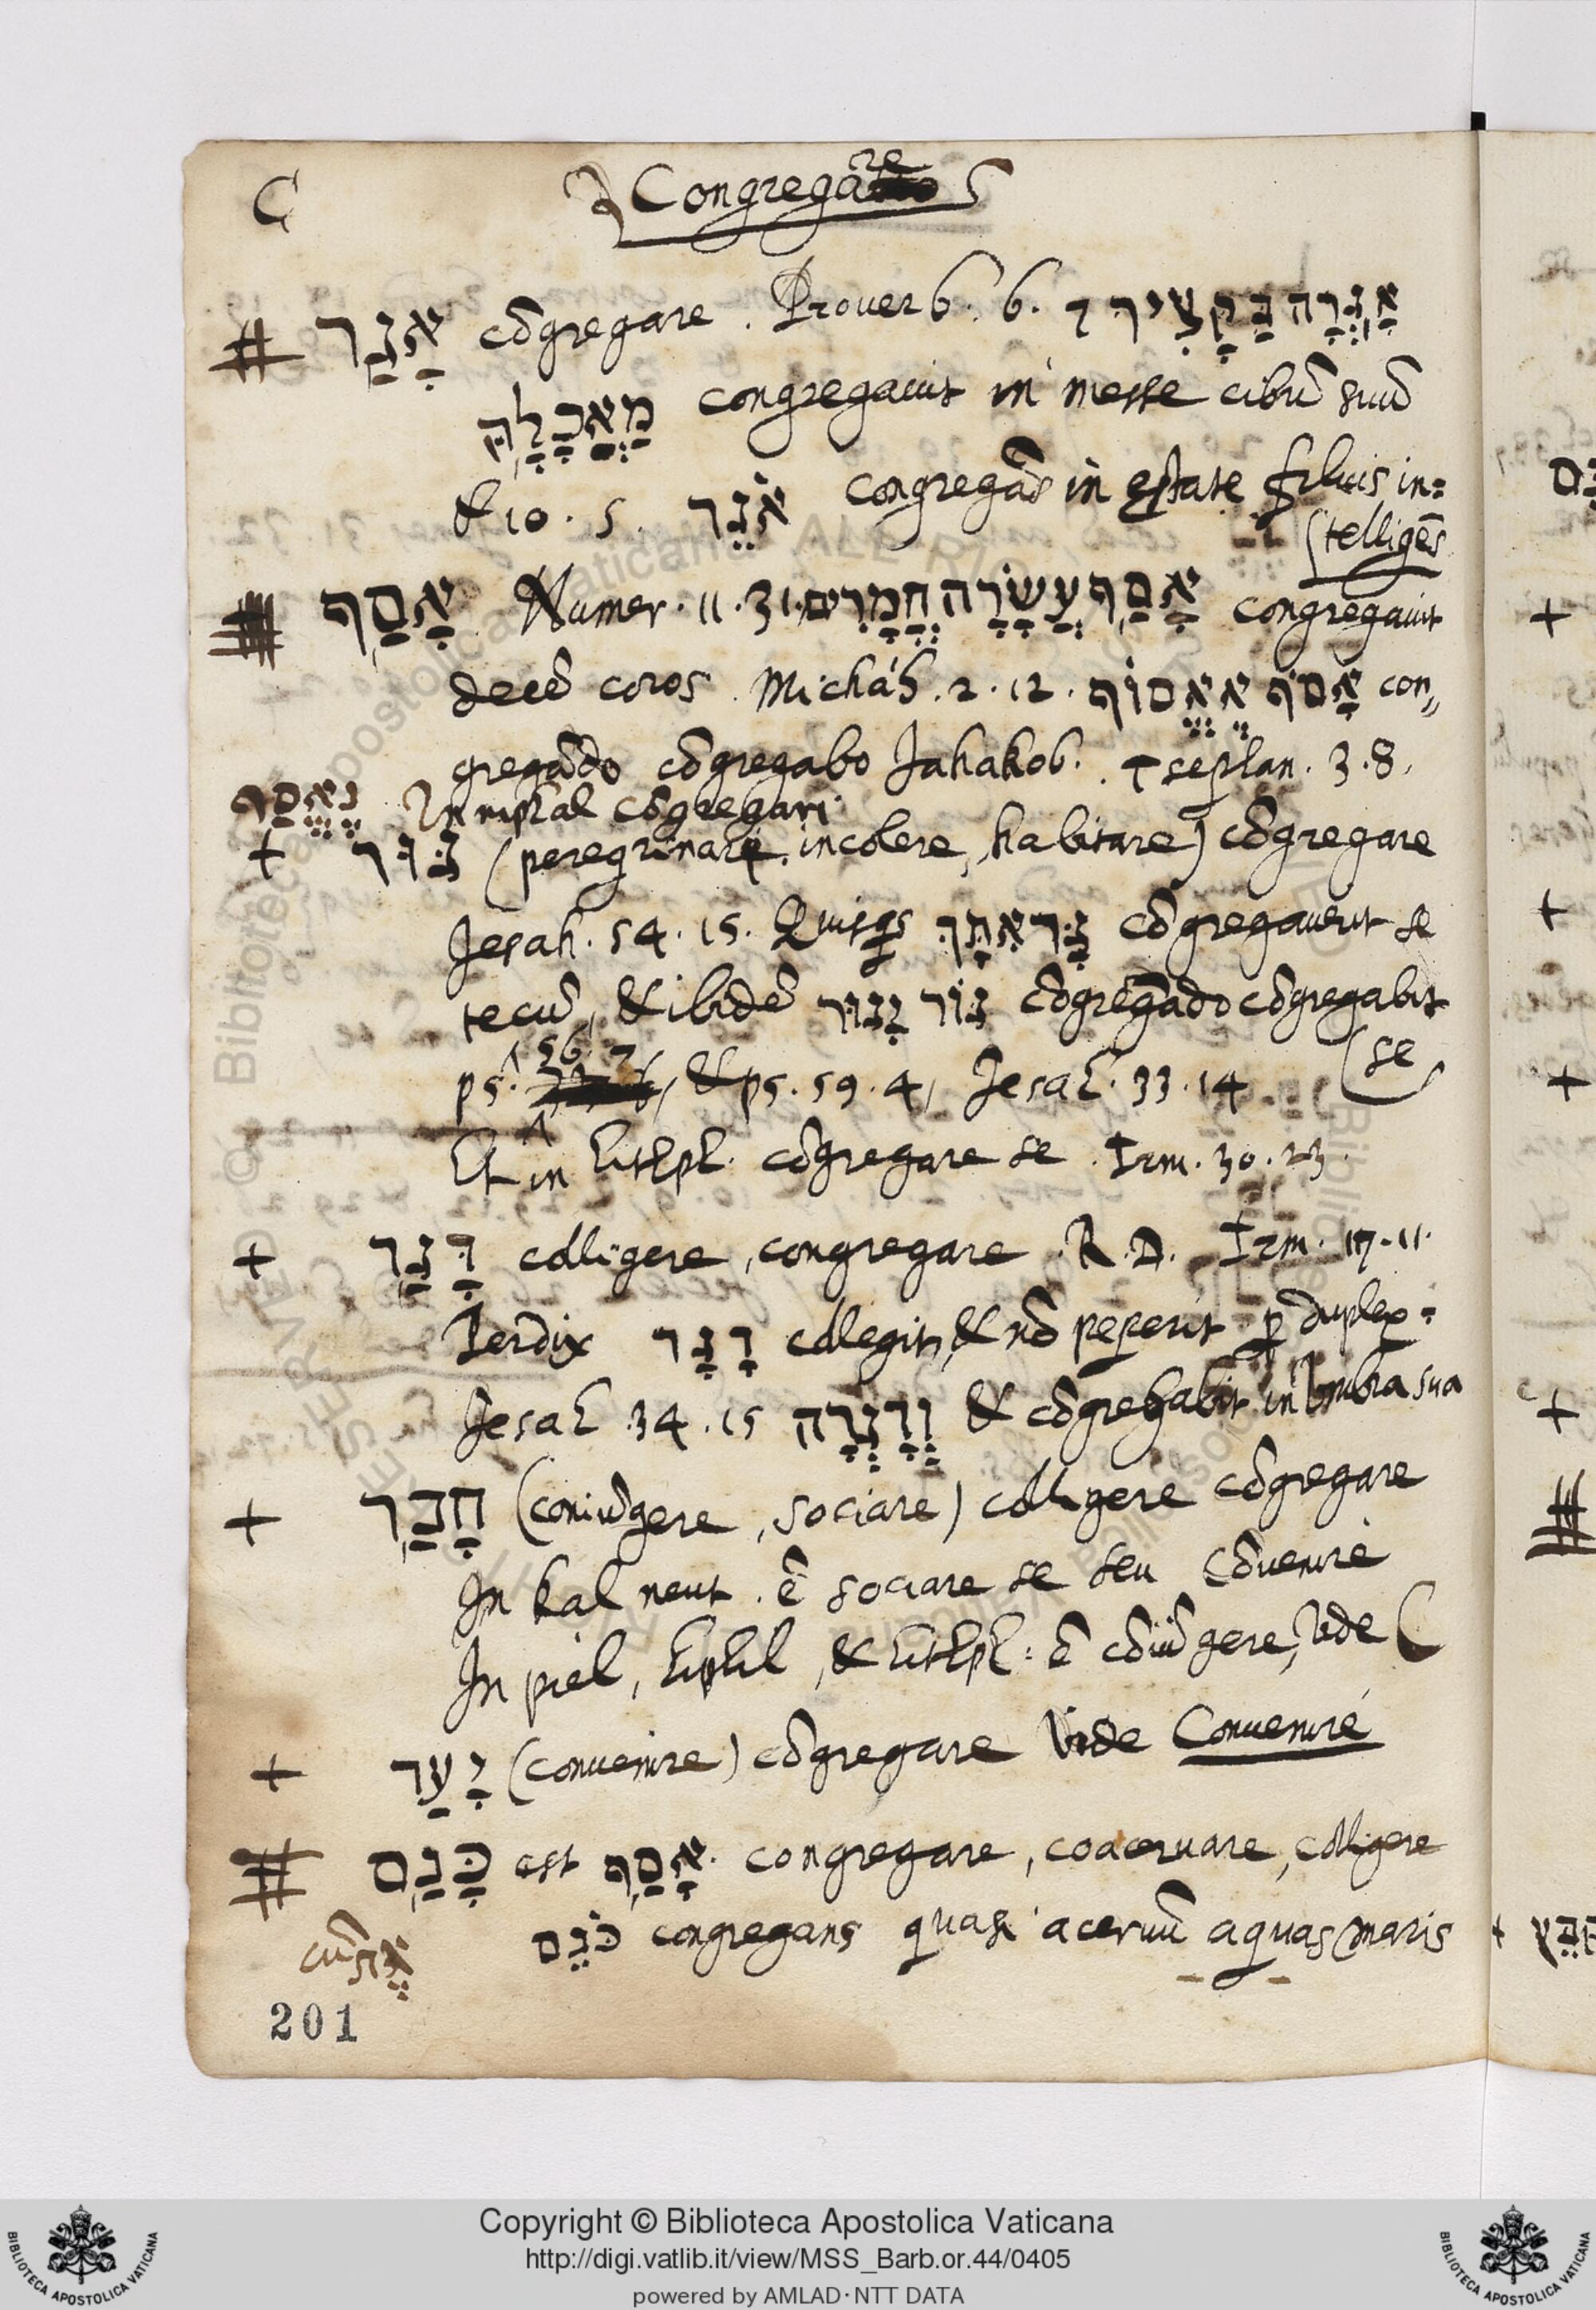 C
Congregare
אָגַר cõgregare. Prouerb. 6. 7 אָגְרָה בַּקָּצִיר
מַאֲכָלָהּ congregauit in messe cibũ suũ
& 10. 5. אֹגֵר congregãs in estate filius in=
telligẽs
אָסַף Numer. 11. 31. אָסַף עֲשָׂרָה חֳמָרִים congregauit
decẽ coros. Michah. 2. 12. אָסֹף אֶאֱסוֹף con,,
gregãdo cõgregabo Jahakob. Tsephan. 3. 8.
נֶאֱסַף In niphal cõgregari
גּוּר (peregrinari, incolere, habitare) cõgregare
Jesah. 54. 15. Quisqs גָּר אִתָּךְ cõgregauerit se
tecũ, & ibidẽ גּוֹר יָגוּר cõgregãdo cõgregabit
(se
56. 7
ps. & ps. 59. 4, Jesah. 33. 14
Et in hithph. cõgregare se. Irm. 30. 23.
דָּגַר colligere, congregare. R. D. Irm. 17. 11.
Perdix דָגָר collegit, & nõ peperit p duplex.
Jesah. 34. 15 וְדָגְרָה & cõgregabit in umbra sua
חָבַר (coniũgere, sociare) colligere cõgregare
In kal neut. ẽ sociare se seu cõuenire
In piel, hiphil, & hithph. ẽ cõiũgere, vide
יָעַד (conuenire) cõgregare vide Conuenire
כָּנַס est אָסַף. congregare, coaceruare, colligere
cũ אֶת כֹּנֵס congregans quasi aceruũ aquas maris
201
Copyright © Biblioteca Apostolica Vaticana
http://digi.vatlib.it/view/MSS_Barb.or.44/0405
powered by AMLAD·NTT DATA